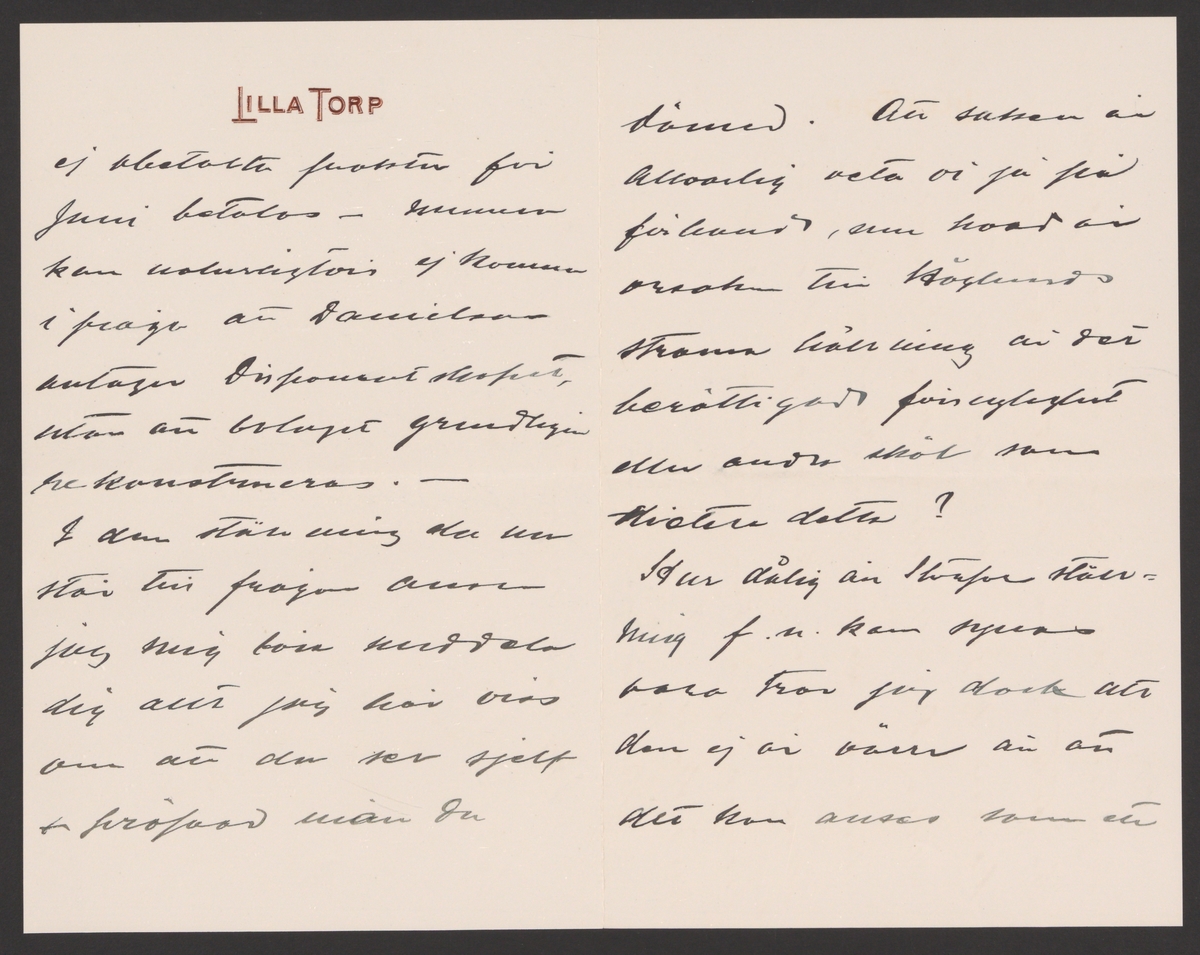 LILLA TORP
ej obetalta frakter för
Juni betalas – numera
kan naturligtvis ej komma
i fråga att Danielson
antager Disponentskapet,
utan att bolaget grundligen
rekonstrueras. –
I den ställning du nu
står till frågan anser
jag mig böra meddela
dig allt jag har viss
om att du ser sjelf
& pröfvar män du
dömer. Att saken är
Allvarlig veta vi ju på
förhand, men hvad är
orsaken till Höglunds
strama hållning är det
berättigad försigtighet
eller andra skäl som
dictera detta?
Hur dålig än Storfors ställ=
ning f. n. kan synas
vara tror jag dock att
den ej är värre än att
det kan anses som ett